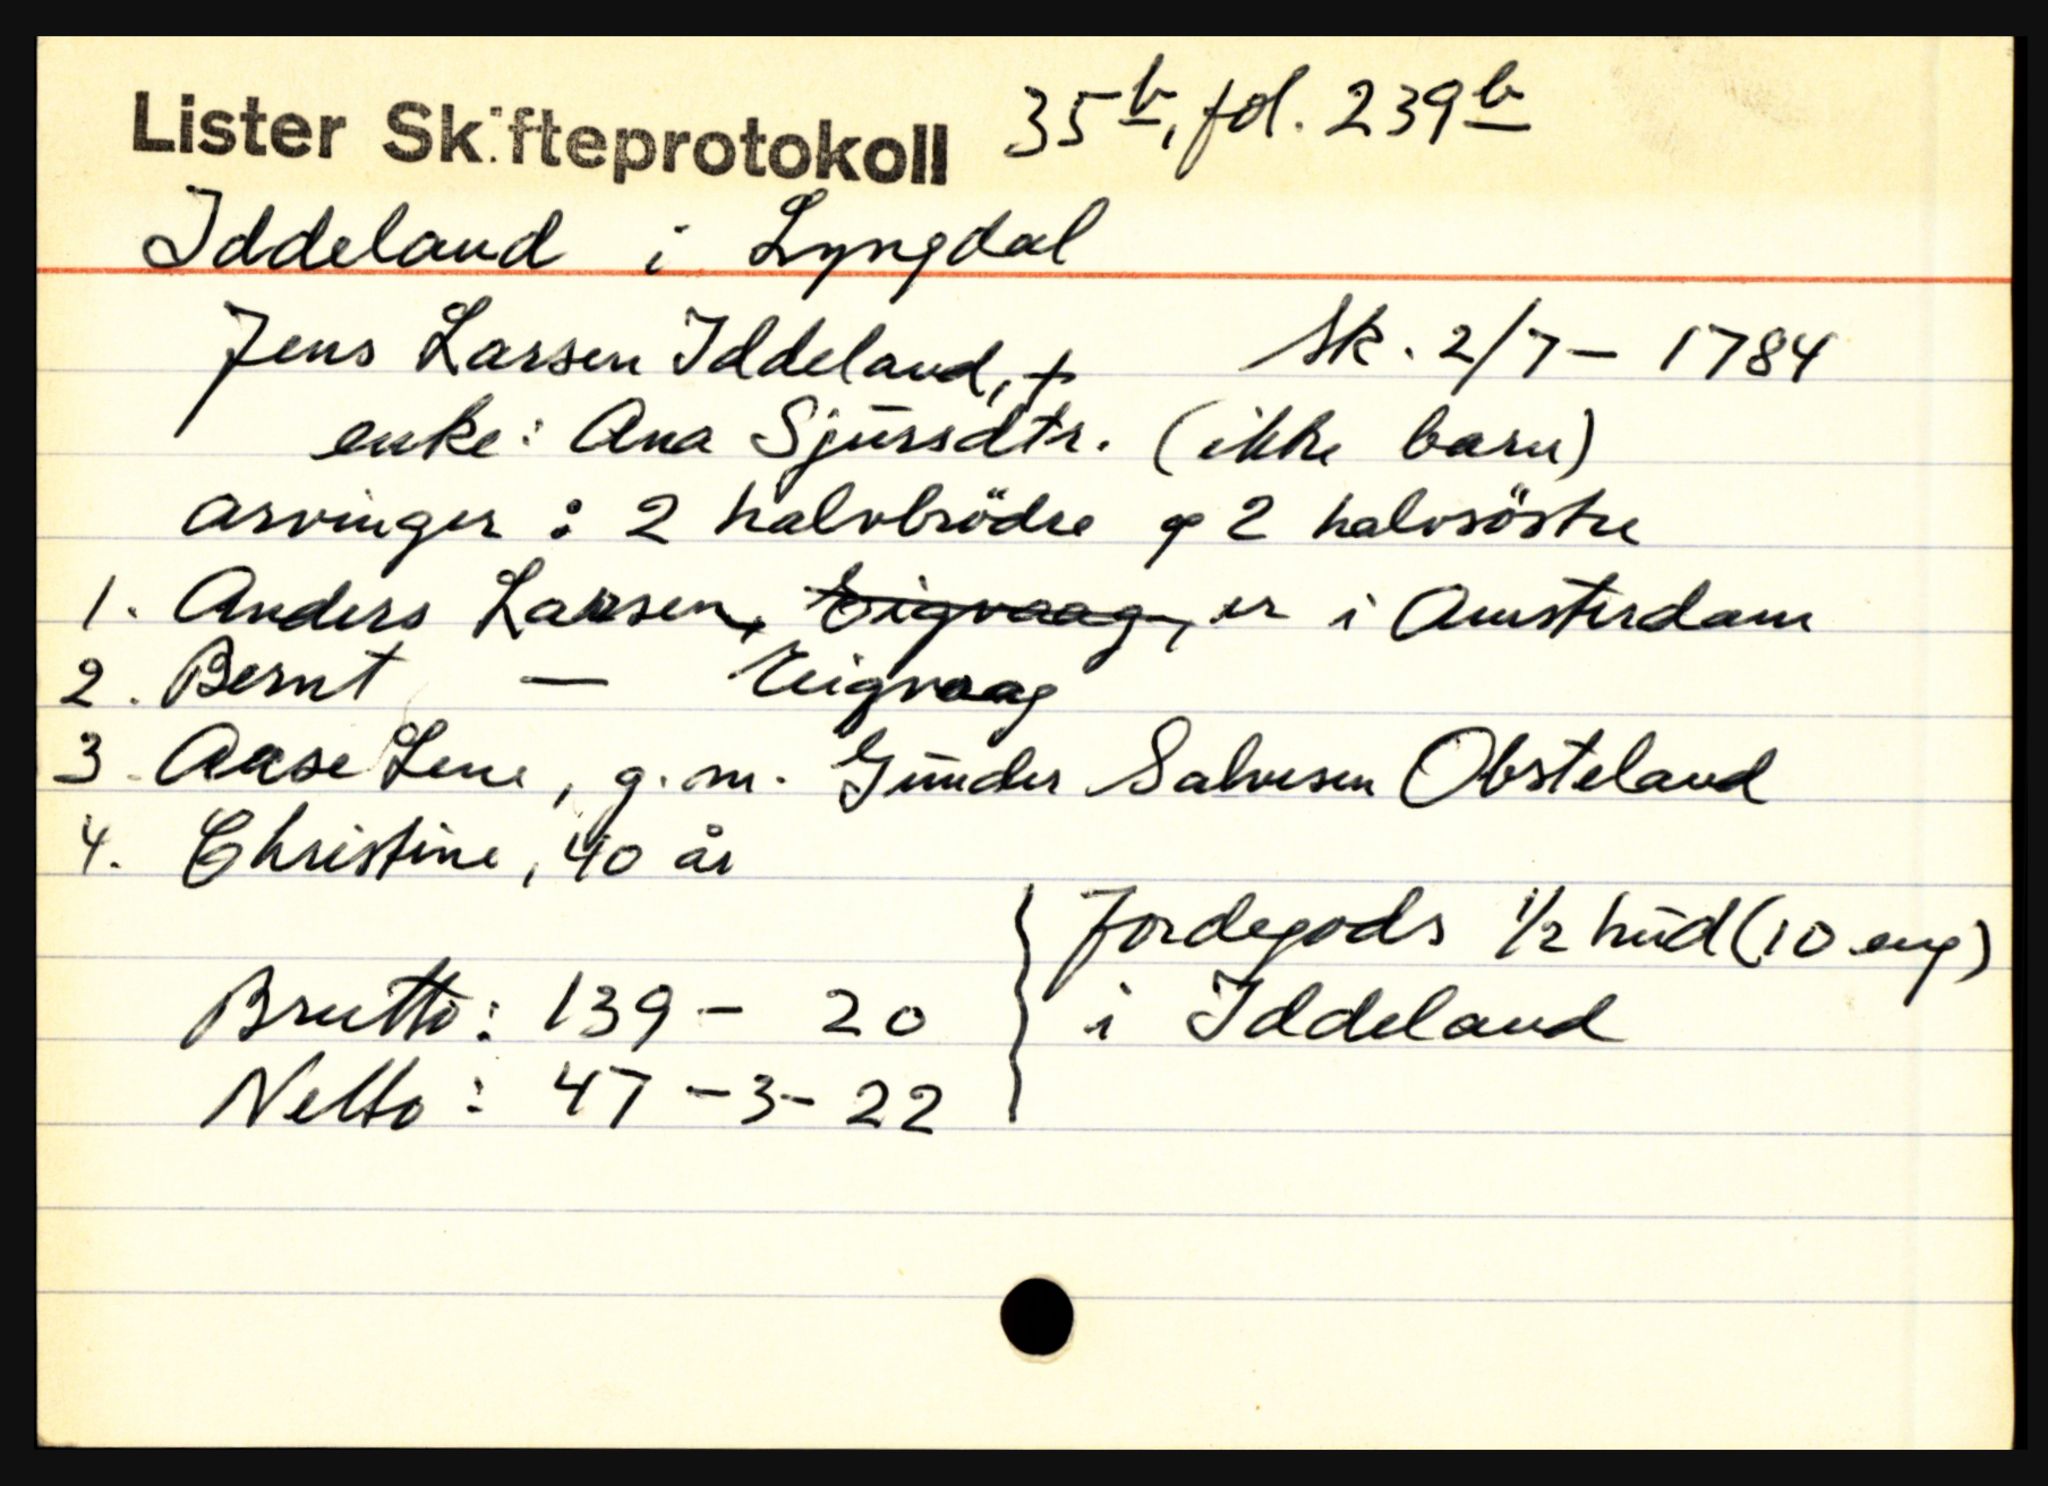 Lister Skifteprotokoll 35b, fol. 239b
Iddeland i Lyngdal
Jens Larsen Iddeland, + Sk. 2/7 - 1784
enke: Ana Sjursdtr. (ikke barn)
arvinger : 2 halvbrödre og 2 halvsöstre
1. Anders Larsen, Eigvaag, er i Amsterdam
2. Bernt — Eigvaag
3. Aase Lene, g. m. Gunder Salvesen Obsteland
4. Christine, 40 år
Jordegods 1/2 hud (10 eng)
Brutto: 139 - 20 i Iddeland
Netto: 47 - 3 - 22